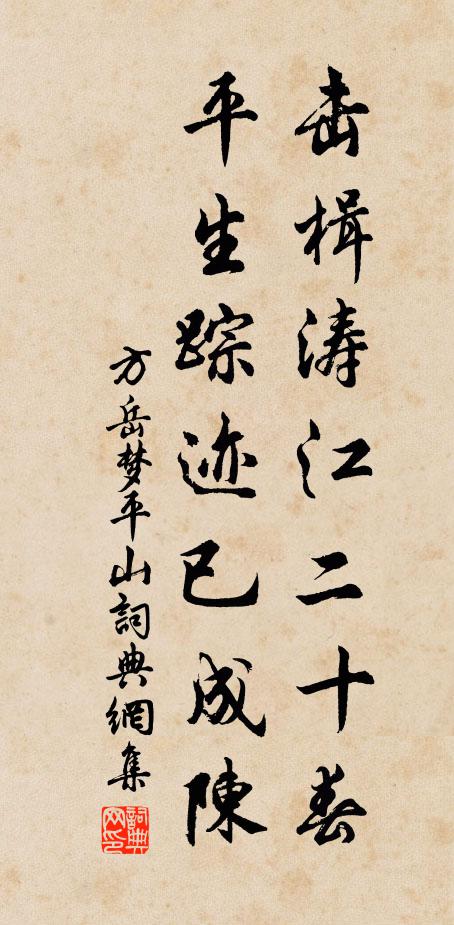 击楫涛江二十春
平生踪迹已成陳
方岳梦平山詞典網集
詞典网印